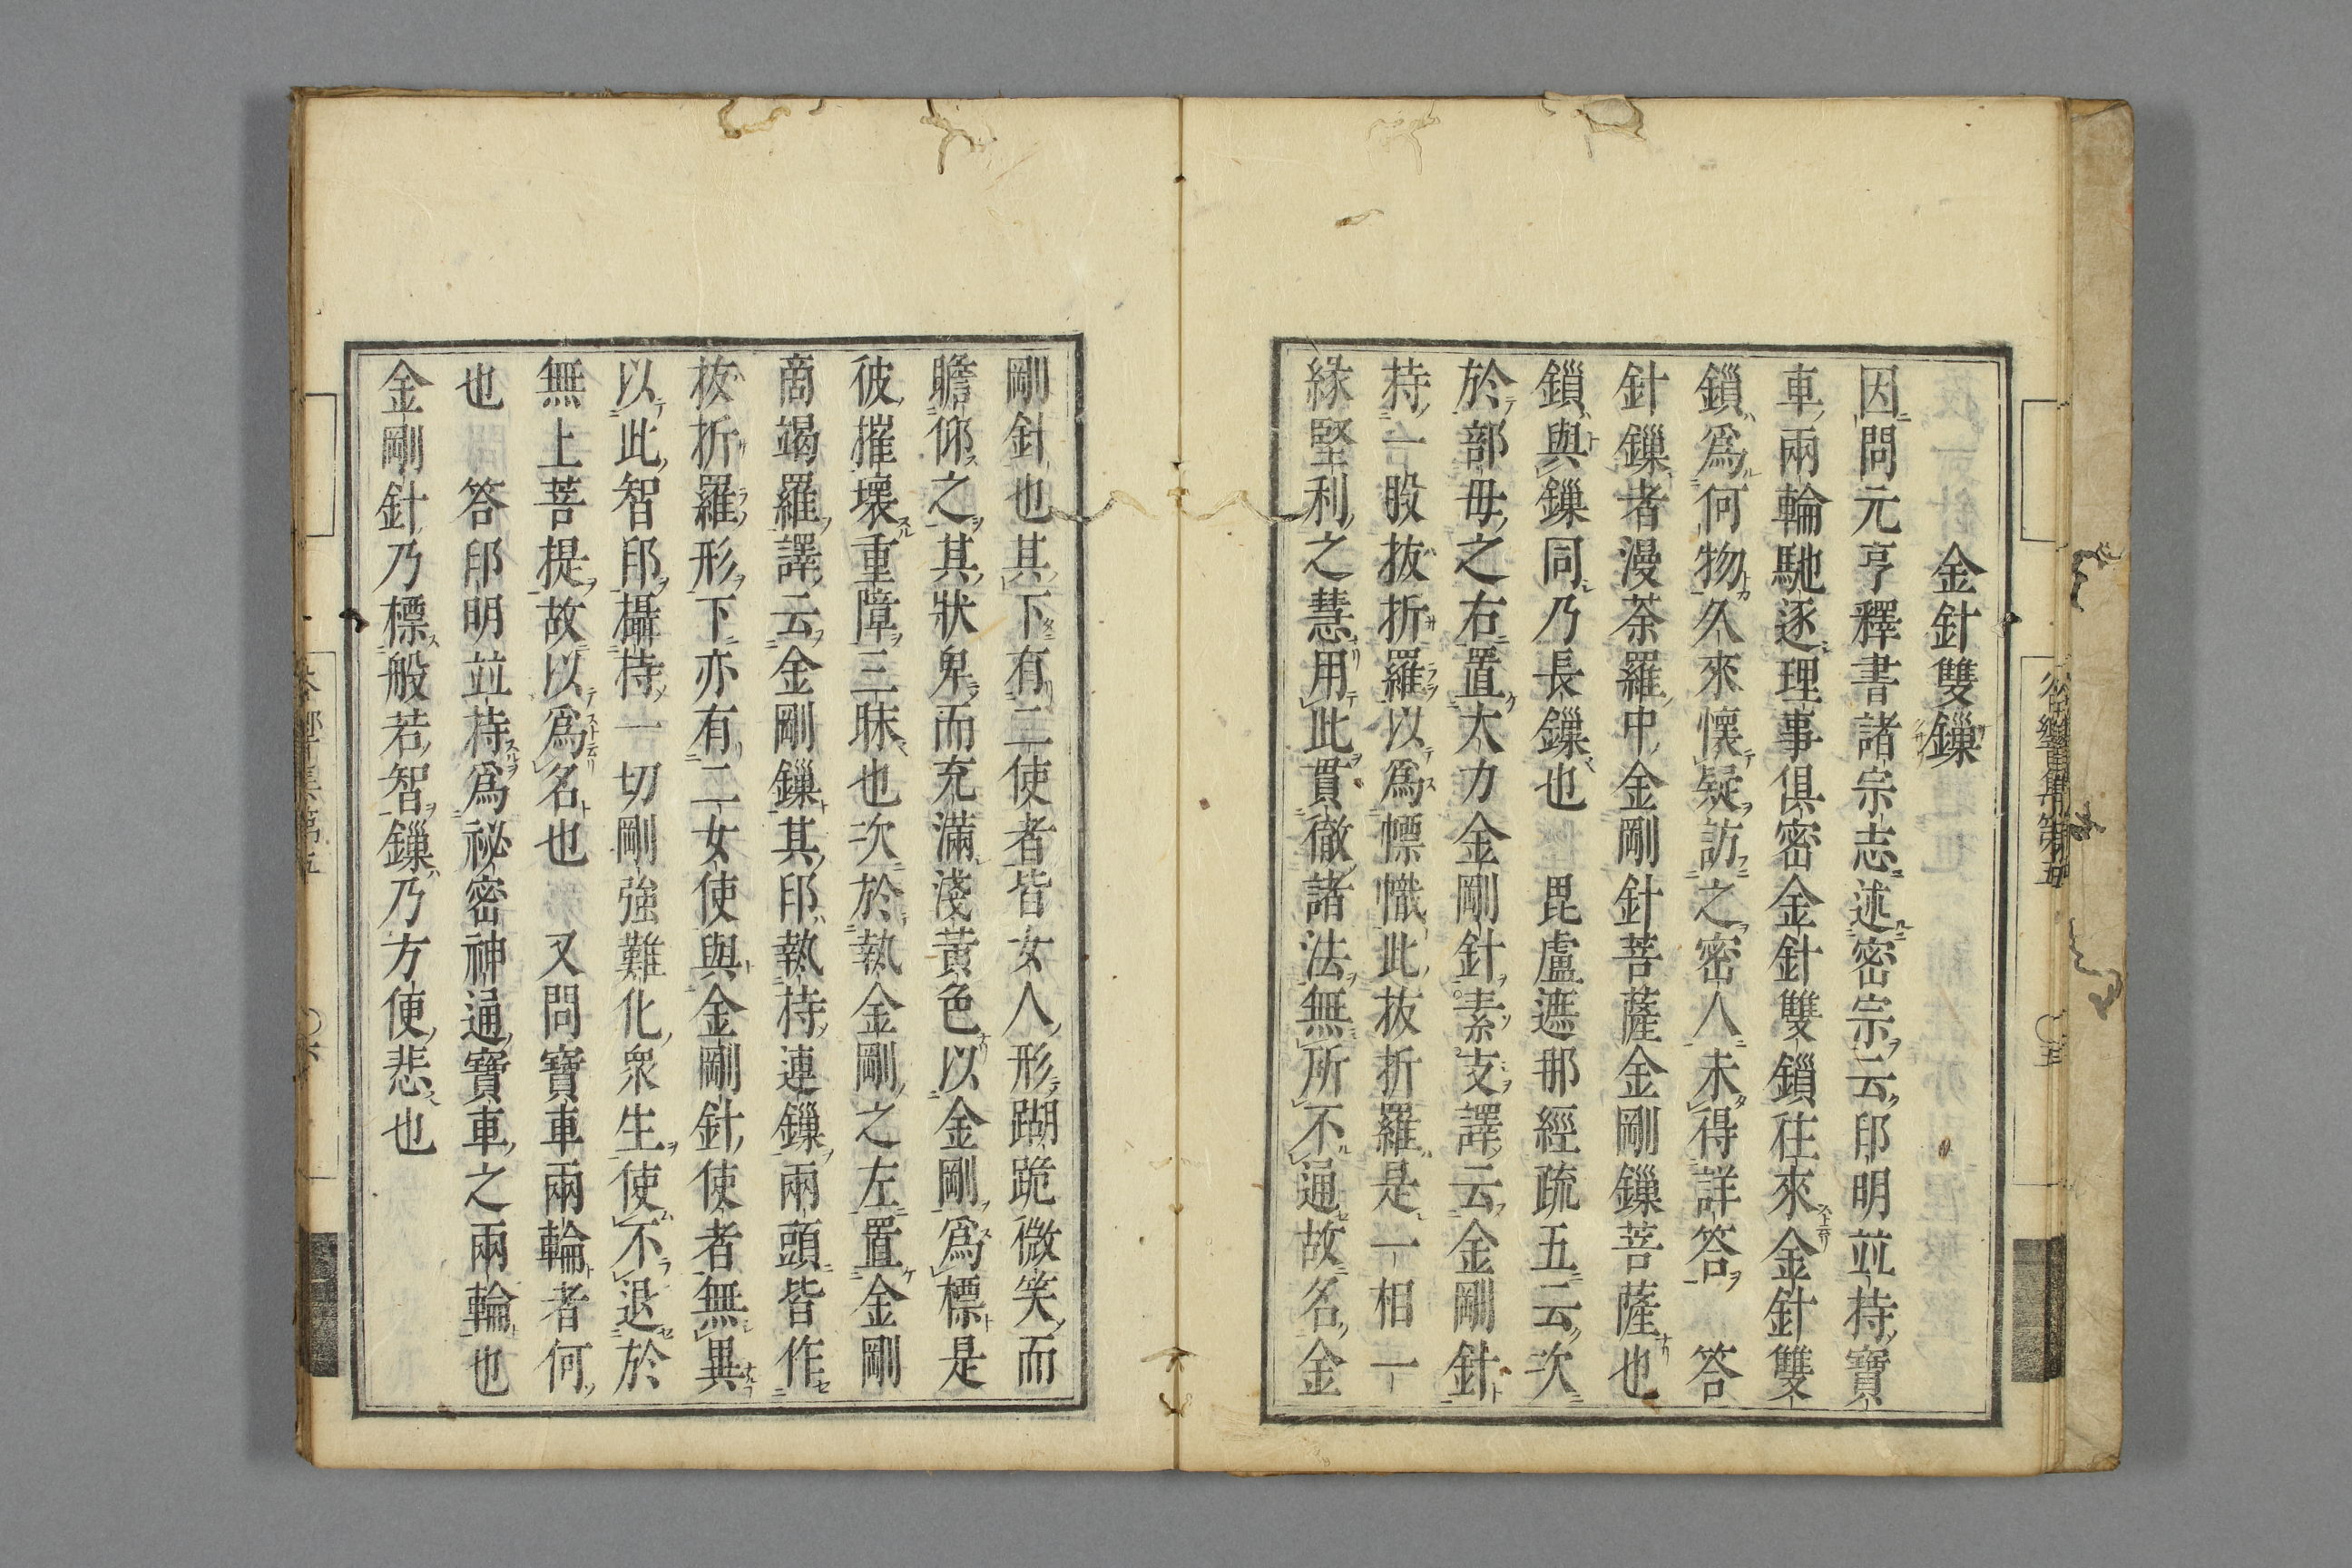 金針雙鏁
因問元亨釋書諸宗志述密宗云印明並持寶
車兩輪馳逐理事俱密金針雙鎖往來金針雙
鎖爲何物久來懷疑訪之密人未得詳答　答
針鏁者漫荼羅中金剛針菩薩金剛鏁菩薩也
鎖與鏁同乃長鏁也　毘盧遮那經疏五云次
於部母之右置大力金剛針素支譯云金剛針
持一股拔折羅以爲幖幟此拔折羅是一相一
緣堅利之慧用此貫徹諸法無所不通故名金
剛針也其下有二使者皆女人形跽跪微笑而
瞻仰之其狀卑而充滿淺黃色以金剛爲標是
彼摧壞重障三昧也次於執金剛之左置金剛
商竭羅譯云金剛鏁其印執持連鏁兩頭皆作
拔折羅形下亦有二女使與金剛針使者無異
以此智印攝持一切剛強難化衆生使不退於
無上菩提故以爲名也　又問寶車兩輪者何
也　答印明並持爲祕密神通寶車之兩輪也
金剛針乃標般若智鏁乃方便悲也